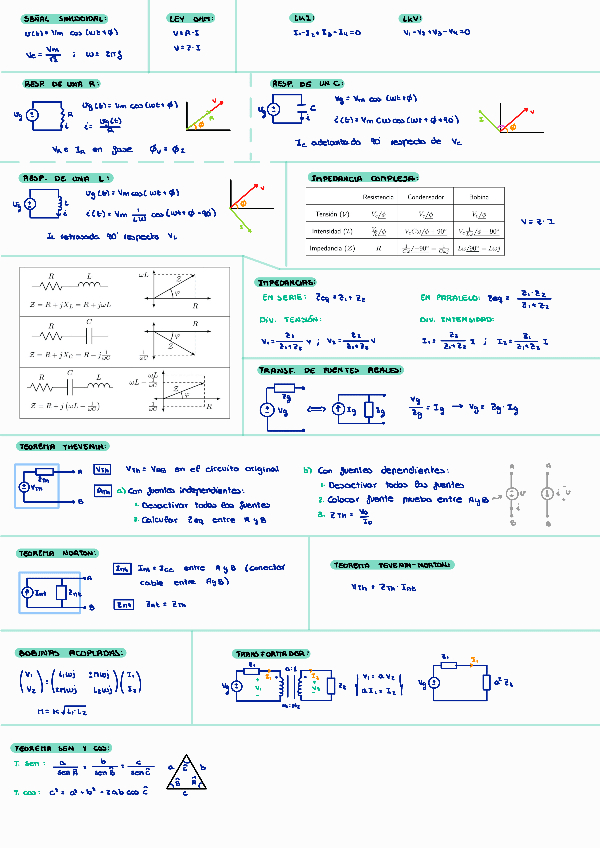 SEÑAL SINUSOIDAL:
v(t) = Vm cos (wt + ϕ)
Ve = Vm/√2 ; w = 2πf
LEY OHM:
V = R · I
V = Z · I
LKI:
I₁ - I₂ + I₃ - I₄ = 0
LKV:
V₁ - V₂ + V₃ - V₄ = 0
RESP. DE UNA R:
Vg (t) = Vm cos (wt + ϕ)
i = Vg(t)/R
VR e IR en fase ϕV = ϕI
RESP. DE UN C:
Vg = Vm cos (wt + ϕ)
i(t) = Vm Cw cos (wt + ϕ + 90°)
Ic adelantada 90° respecto de Vc
RESP. DE UNA L:
Vg (t) = Vm cos (wt + ϕ)
i(t) = Vm 1/Lw cos (wt + ϕ - 90°)
IL retrasada 90° respecto VL
IMPEDANCIA COMPLEJA:
Resistencia Condensador Bobina
Tensión (V)
Intensidad (I)
Impedancia (Z) R
V = Z · I
R L
Z = R + jXL = R + jωL
R C
R L C
IMPEDANCIAS:
EN SERIE: Zeq = Z₁ + Z₂
EN PARALELO: Zeq = Z₁ · Z₂ / Z₁ + Z₂
DIV. TENSIÓN:
V₁ = Z₁/Z₁+Z₂ V ; V₂ = Z₂/Z₁+Z₂ V
DIV. INTENSIDAD:
I₁ = Z₂/Z₁+Z₂ I ; I₂ = Z₁/Z₁+Z₂ I
TRANSF. DE FUENTES REALES:
Vg/Zg = Ig → Vg = Zg · Ig
TEOREMA THEVENIN:
VTh VTh = VAB en el circuito original
RTh a) Con fuentes independientes:
1. Desactivar todas las fuentes
2. Calcular Zeq entre A y B
b) Con fuentes dependientes:
1. Desactivar todas las fuentes
2. Colocar fuente prueba entre A y B
3. ZTh = V₀/I₀
TEOREMA NORTON:
Int Int = Icc entre A y B (conectar
cable entre A y B)
Znt Znt = ZTh
TEOREMA TEVENIN-NORTON:
VTh = ZTh · Int
BOBINAS ACOPLADAS:
(V₁ V₂) = (L₁wj ±Mwj ±Mwj L₂wj) (I₁ I₂)
M = K √L₁·L₂
TRANSFORMADOR:
a:1
n₁:n₂
V₁ = a V₂
a I₁ = I₂
a² Z₂
TEOREMA SEN Y COS:
T. sen: a/sen Â = b/sen B̂ = c/sen Ĉ
T. cos: c² = a² + b² - 2ab cos ĉ